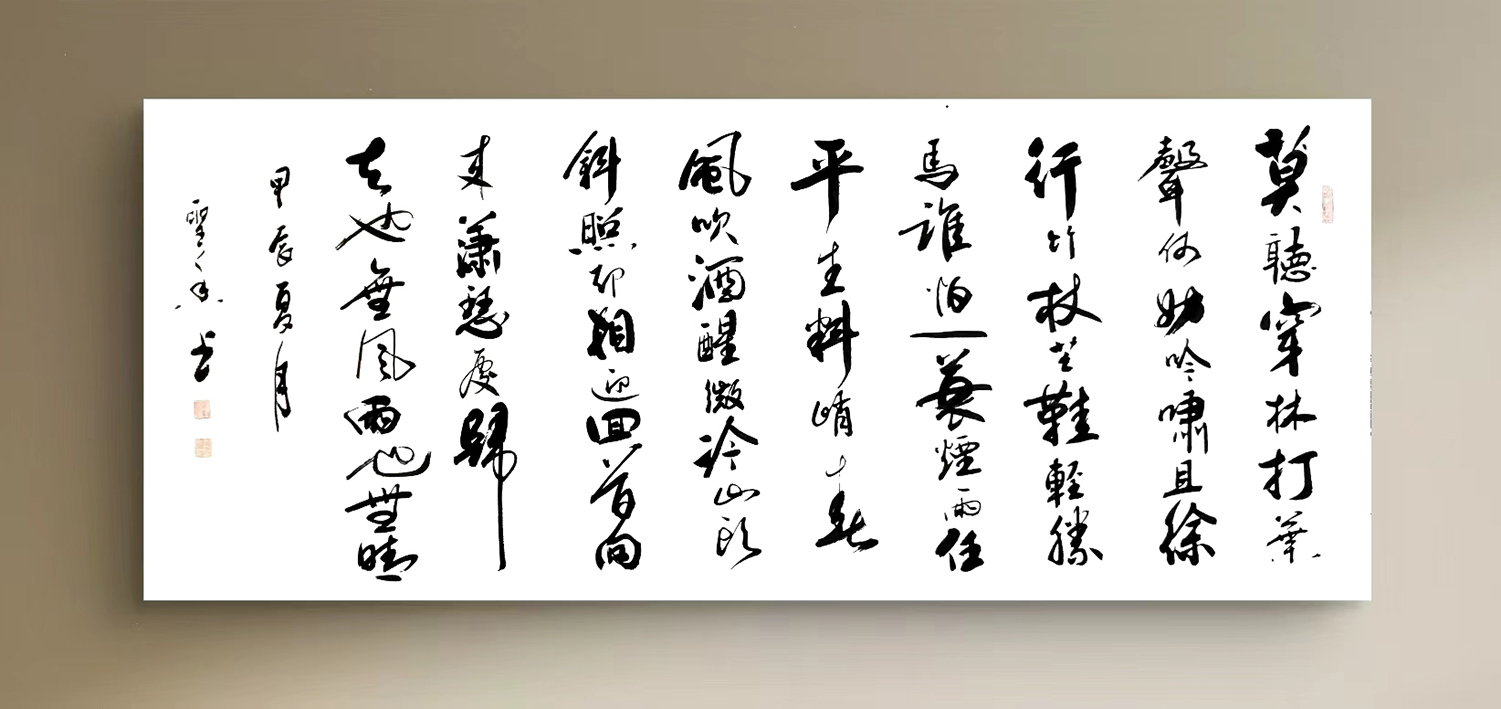 莫聽穿林打葉
聲何妨吟嘯且徐
行竹杖芒鞋輕勝
馬誰怕一蓑煙雨任
平生料峭春
風吹酒醒微冷山頭
斜照却相迎回首向
来瀟瑟處歸
去也無風雨也無晴
甲辰夏月
聖書